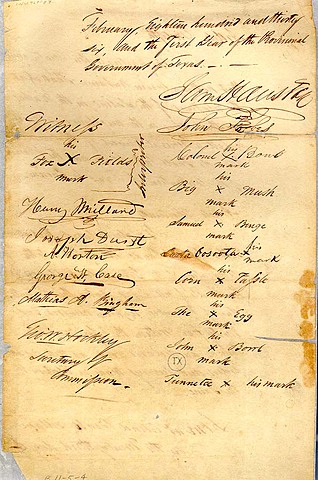 February, Eighteen hundred and thirty
six, and the First Year of the Provisional
Government of Texas. —
Sam Houston
John Forbes
Witness
his
Fox X Fields
mark
Interpreter
Henry Millard
Joseph Durst
A Horton
George W Case
Mathias A. Bingham
Geo. W. Hockley
Secretary of
Commission.
Colonel X Bowl
mark
his
Big X Mush
mark
his
Samuel X Benge
mark
his
Oosoota X
mark
his
Corn X Tassle
mark
his
The X Egg
mark
his
John X Bowl
mark
Tunnetee X his mark
IX